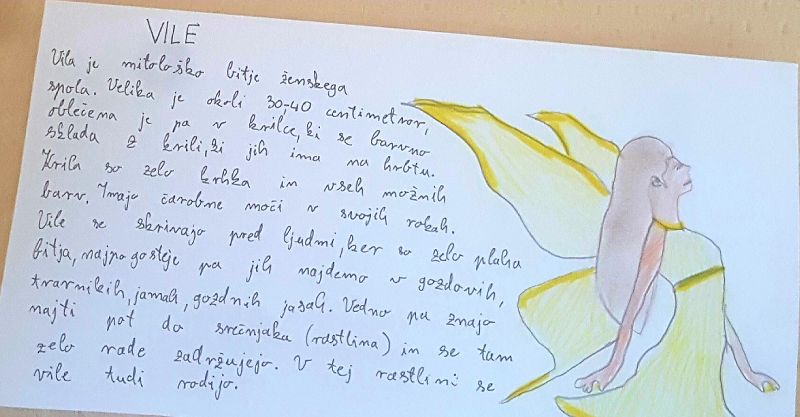 VILE
Vila je mitološko bitje ženskega
spola. Velika je okoli 30-40 centimetrov,
oblečena je pa v krilce, ki se barvno
sklada z krili, ki jih ima na hrbtu.
Krila so zelo krhka in vseh možnih
barv. Imajo čarobne moči v svojih rokah.
Vile se skrivajo pred ljudmi, ker so zelo plaha
bitja, najpogosteje pa jih najdemo v gozdovih,
travnikih, jamah, gozdnih jasah. Vedno pa znajo
najti pot do srečnjaka (rastlina) in se tam
zelo rade zadržujejo. V tej rastlini se
vile tudi rodijo.